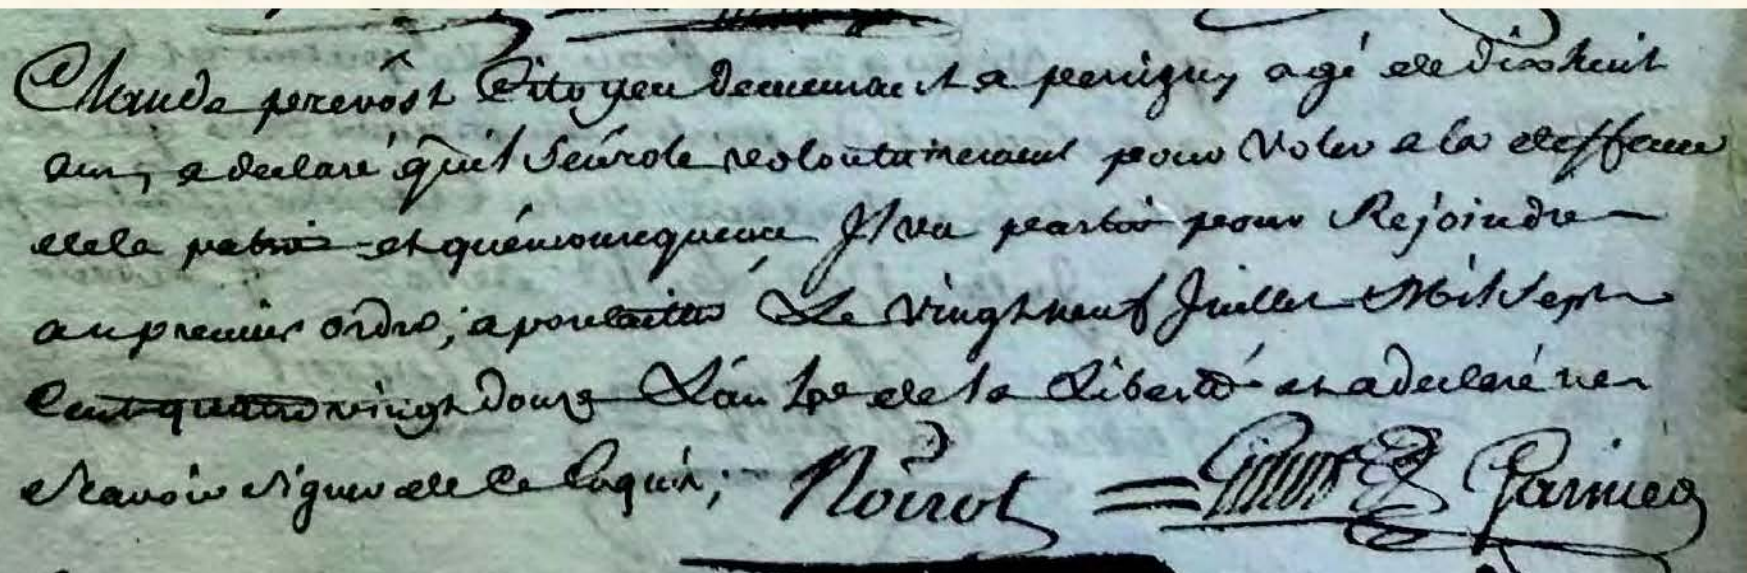 Claude perevôst Citoyen demeurant a perrigny agé de dix huit
ans, a declaré qu'il s'enrole volontairement pour voler a la deffence
de la patrie et qu'en conséquence Il va partir pour Rejoindre
au premier ordre, a pontailler Le vingt neuf Juillet Mil sept
Cent quatre vingt douze L'an 4e de la Liberté et a declaré ne
scavoir signer de ce Enquis;
Noirot Garnier